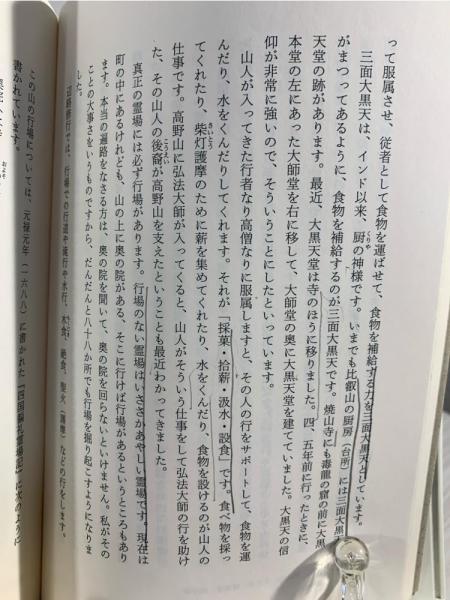 って服属させ、従者として食物を運ばせて、食物を補給する力を三面大黒天としています。
三面大黒天は、インド以来、厨の神様です。いまでも比叡山の厨房（台所）には三面大黒
がまつってあるように、食物を補給するのが三面大黒天です。焼山寺にも毒龍の窟の前に大黒
天堂の跡があります。最近、大黒天堂は寺のほうに移りました。四、五年前に行ったときに、
本堂の左にあった大師堂を右に移して、大師堂の奥に大黒天堂を建てていました。大黒天の信
仰が非常に強いので、そういうことにしたといっています。
山人が入ってきた行者なり高僧なりに服属しますと、その人の行をサポートして、食物を運
んだり、水をくんだりしてくれます。それが「採菓・拾薪・汲水・設食」です。食べ物を採っ
てくれたり、柴灯護摩のために薪を集めてくれたり、水をくんだり、食物を設けるのが山人の
仕事です。高野山に弘法大師が入ってくると、山人がそういう仕事をして弘法大師の行を助け
た、その山人の後裔が高野山を支えたということも最近わかってきました。
真正の霊場には必ず行場があります。行場のない霊場はいささかあやしい霊場です。現在は
町の中にあるけれども、山の上に奥の院がある、そこに行けば行場があるというところもあり
ます。本当の遍路をなさる方は、奥の院を聞いて、奥の院を回らないといけません。私がその
ことの大事さをいうものですから、だんだんと八十八か所でも行場を掘り起こすようになりま
した。
辺路修行では、行場での行道や滝行や水行、木食、絶食、聖火（護摩）などの行をします。
この山の行場については、元禄元年（一六八八）に書かれた『四国徧礼霊場記』に次のように
書かれています。